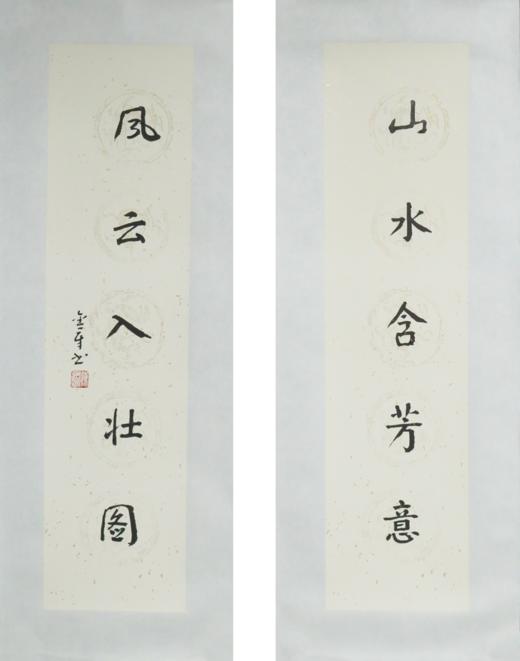 山水含芳意
风云入壮图